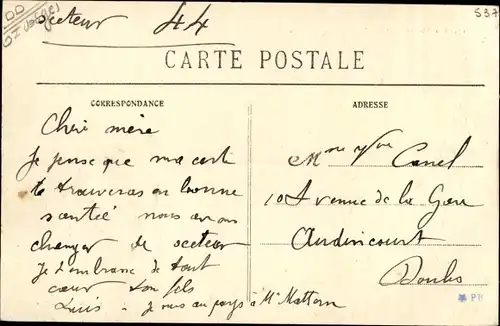 secteur 44
537
CARTE POSTALE
CORRESPONDANCE
ADRESSE
Cheri mère
Je pense que ma cart
te trouveras en bonne
santié nous avons
changer de secteur
Je t'embrasse de tout
cœur ton fils
Louis - Je vais au pays à Mr Mattern
Mme Vve Canel
10 Avenue de la Gare
Audincourt
Doubs